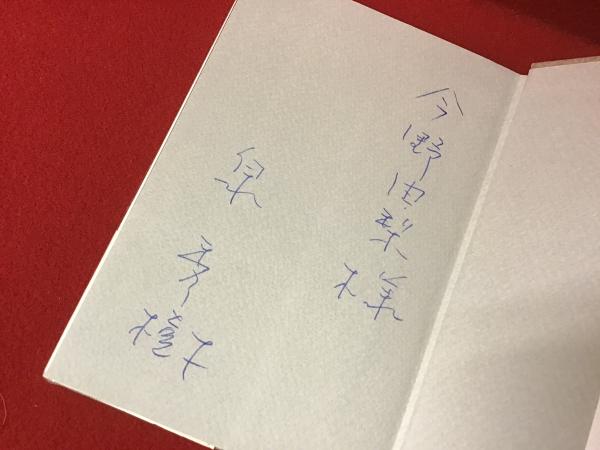 今野由梨様
泉 秀樹